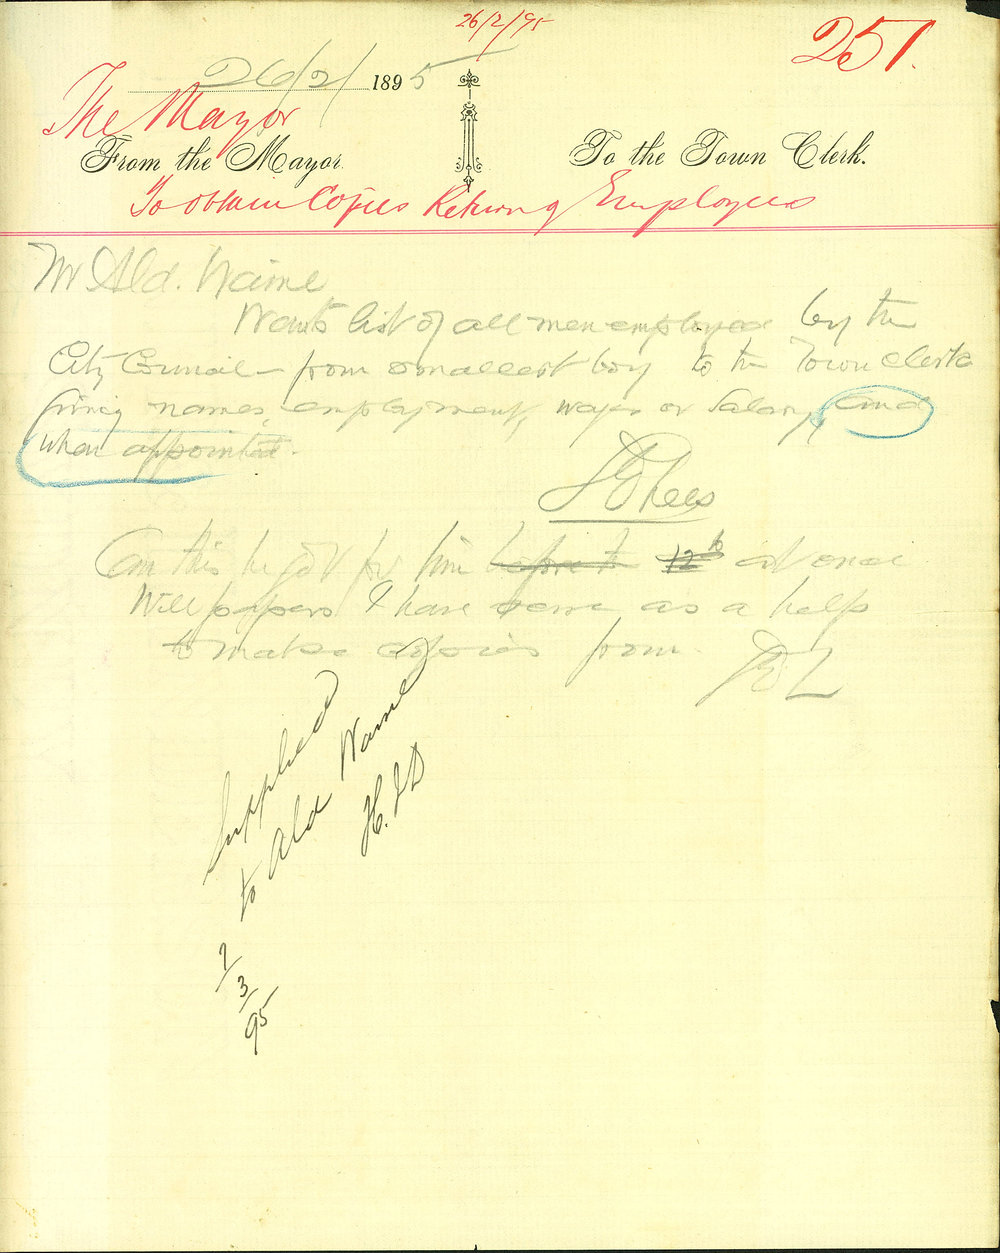 26/2/95
251.
26/2/ 1895
The Mayor
From the Mayor To the Town Clerk.
To obtain Copies Return of Employees
Mr Ald. Waine
Wants list of all men employed by the
City Council – from smallest boy to the Town Clerk
giving names, employment, wages or Salary, and
when appointed.
Can this be got for him before the 12th at once
Will papers I have serve as a help
to make copies from
Supplied
to Ald Waine
H.J.D
1/3/95